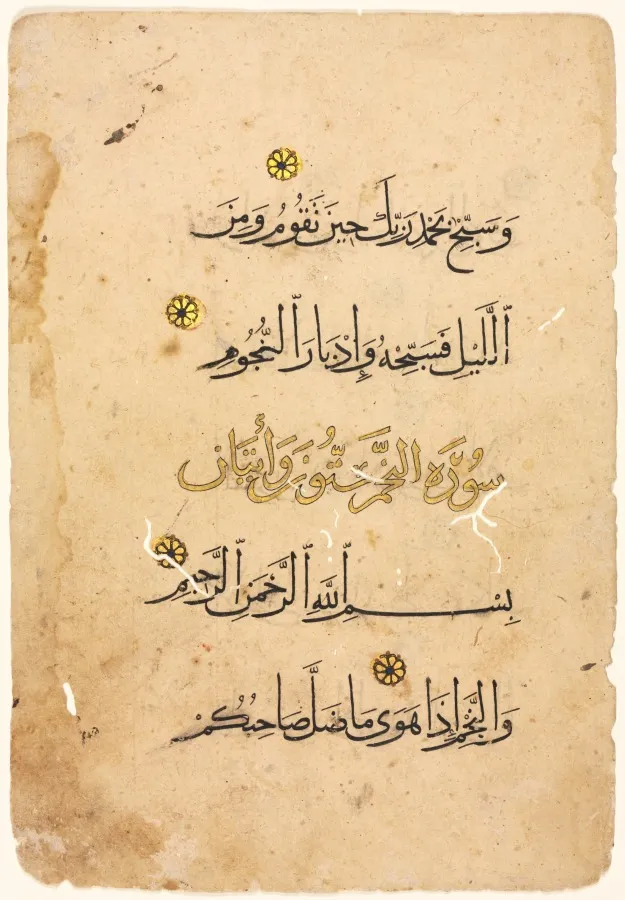 وَسَبِّحْ بِحَمْدِ رَبِّكَ حِينَ تَقُومُ وَمِنَ
ٱللَّيْلِ فَسَبِّحْهُ وَإِدْبَارَ ٱلنُّجُومِ
سُورَةُ النَّجْمِ سِتُّونَ وَأَيَتَانِ
بِسْمِ ٱللَّهِ ٱلرَّحْمَنِ ٱلرَّحِيمِ
وَالنَّجْمِ إِذَا هَوَى مَا ضَلَّ صَاحِبُكُمْ